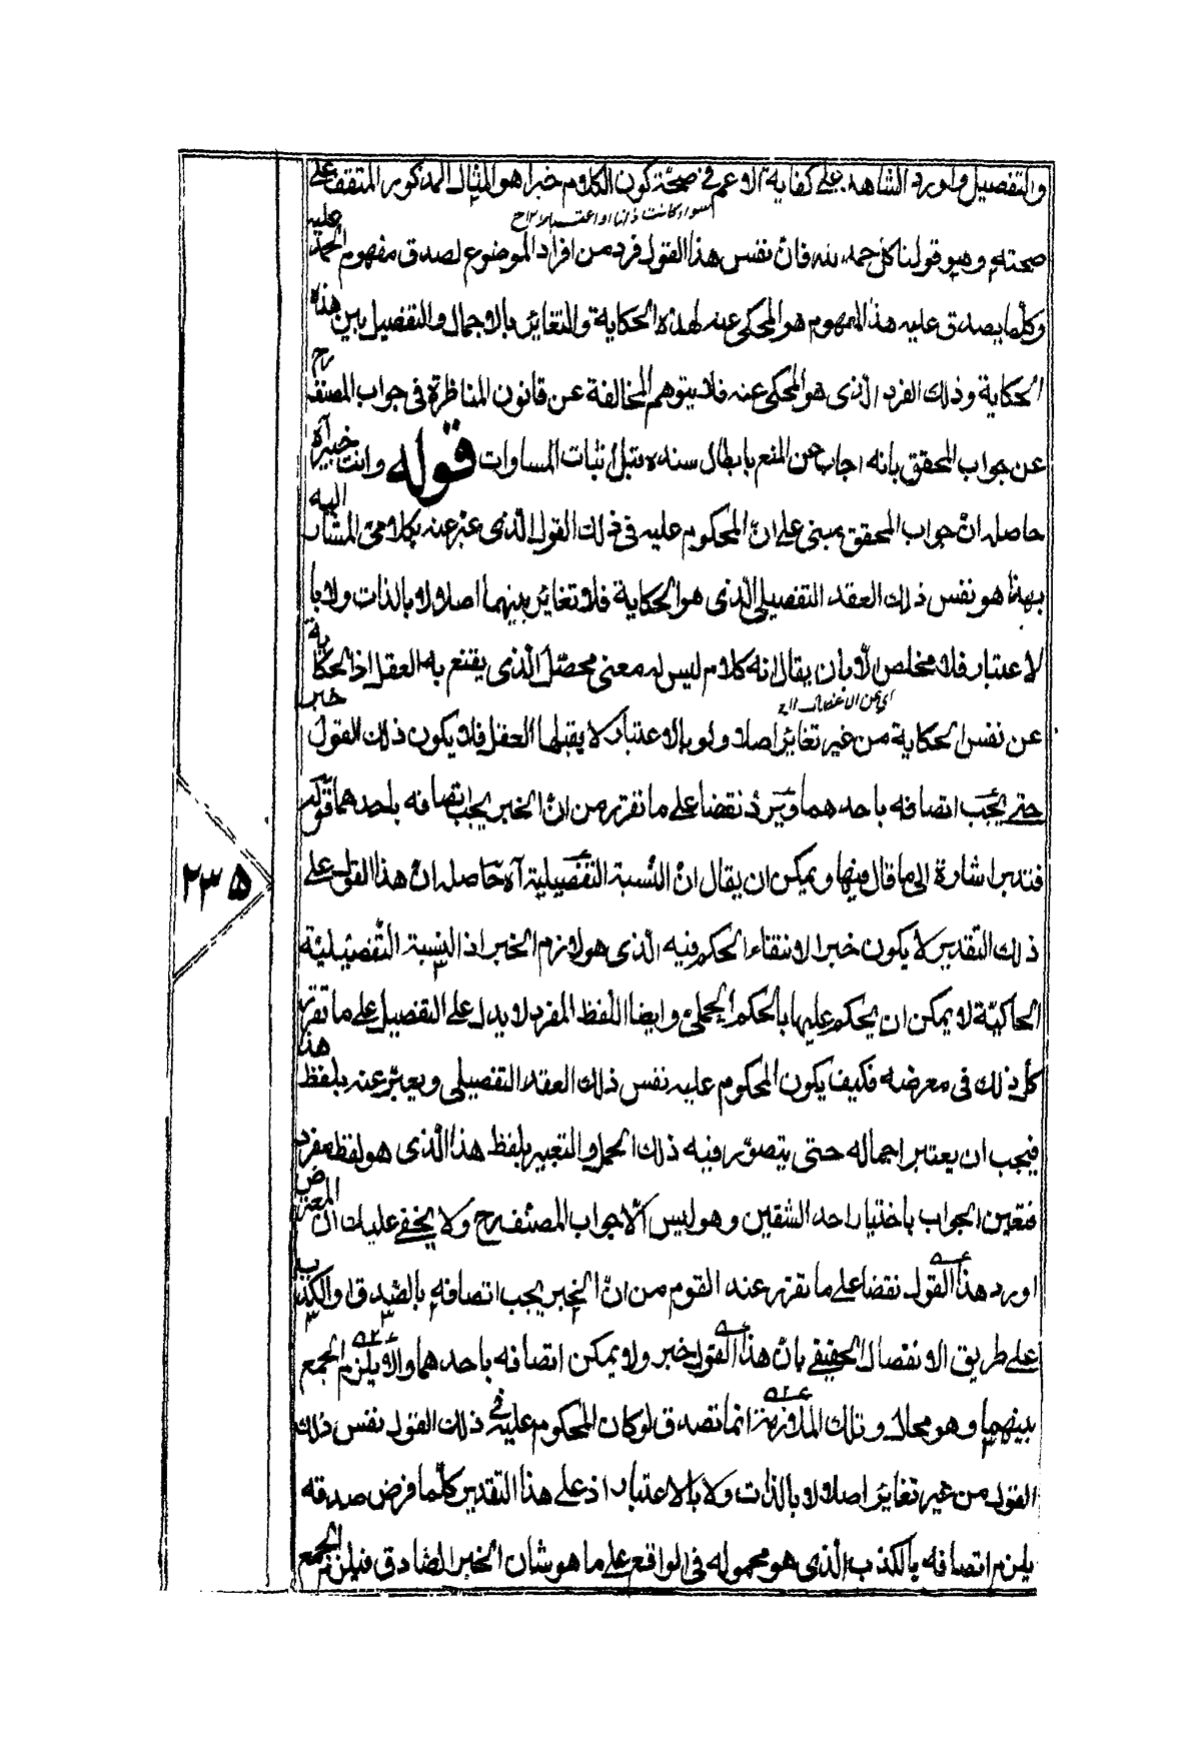 والتفصيل واورد الشاهد على كفاية الاعم في صحة كون الكلام خبرا هو المثال المذكور المتفق على
سواء كانت ذاتا او اعتبارا ح
صحته وهو قولنا كل حمد لله فان نفس هذا القول فرد من افراد الموضوع لصدق مفهوم الحمد عليه
وكلما يصدق عليه هذا المفهوم هو المحكي عنه لهذه الحكاية والتغاير بالاجمال والتفصيل بين هذه
الحكاية وذلك الفرد الذى هو المحكي عنه فلا يتوهم المخالفة عن قانون المناظرة في جواب المصنف رح
عن جواب المحقق بانه اجاب عن المنع بابطال سنده قبل اثبات المساوات قوله وانت خبير آه
حاصله ان جواب المحقق مبنى على ان المحكوم عليه في ذلك القول الذى عبر عنه بكلامى المشار اليه
بهذا هو نفس ذلك العقد التفصيلى الذى هو الحكاية فلا تغاير بينهما اصلا لا بالذات ولا با
لاعتبار فلا مخلص الا بان يقال انه كلام ليس له معنى محصل الذى يقنع به العقل اذ الحكاية
عن نفس الحكاية من غير تغاير اصلا ولو بالاعتبار لا يقبلها العقل فلا يكون ذلك القول خبر
حتى يجب اتصافه باحدهما ويرد نقضا على ما تقرر من ان الخبر يجب اتصافه باحدهما قوله
فتدبر اشارة الى ما قال فيها ويمكن ان يقال ان النسبة التفصيلية آه حاصله ان هذا القول على
ذلك التقدير لا يكون خبرا لانتفاء الحكم فيه الذى هو لازم الخبر اذ النسبة التفصيلية
الحاكية لا يمكن ان يحكم عليها بالحكم الحملى وايضا اللفظ المفرد لا يدل على التفصيل على ما تقرر
كل ذلك في معرضه فكيف يكون المحكوم عليه نفس ذلك العقد التفصيلى ويعبر عنه بلفظ هذا
فيجب ان يعتبر اجماله حتى يتصور فيه ذلك الحمل والتعبير بلفظ هذا الذى هو لفظ مفرد
فتعين الجواب باختيار احد الشقين وهو ليس الا جواب المصنف رح ولا يخفى عليك ان المعترض
اورد هذا القول نقضا على ما تقرر عند القوم من ان الخبر يجب اتصافه بالصدق او الكذب
على طريق الانفصال الحقيقي بان هذا القول خبر ولا يمكن اتصافه باحدهما والا يلزم الجمع
بينهما وهو محال وتلك الملازمة انما تصدق لو كان المحكوم عليه في ذلك القول نفس ذلك
القول من غير تغاير اصلا لا بالذات ولا بالاعتبار اذ على هذا التقدير كلما فرض صدقه
يلزم اتصافه بالكذب الذى هو محموله في الواقع على ما هو شان الخبر الصادق فيلزم الجمع
٢٣٥